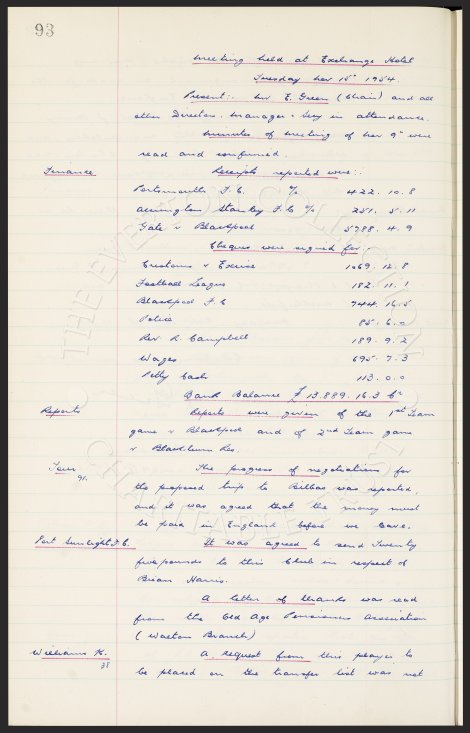 93
Meeting held at Exchange Hotel
Tuesday Nov 15th 1954
Present:- Mr E. Green (Chair) and all
other Directors. Manager & Secy in attendance.
Minutes of meeting of Nov 9th were
read and confirmed.
Finance Receipts reported were:-
Portsmouth F.C. 422. 10. 8
Accrington Stanley F.C 251. 5. 11
Gate v Blackpool 5788. 4. 9
Cheques were signed for:-
Customs & Excise 1069. 12. 8
Football League 182. 11. 1
Blackpool F.C 744. 16. 5
Police 85. 6. 0
Rev R. Campbell 189. 9. 2
Wages 695. 7. 3
Petty Cash 113. 0. 0
Bank Balance £13.889. 16. 3 Cr
Reports Reports were given of the 1st Team
game v Blackpool and of 2nd Team game
v Blackburn Res.
Tour 91. The progress of negotiations for
the proposed trip to Bilbao was reported,
and it was agreed that the money must
be paid in England before we leave.
Port Sunlight F.C. It was agreed to send Twenty
five pounds to this Club in respect of
Brian Harris.
A letter of thanks was read
from the Old Age Pensioners Association
(Walton Branch)
Williams K. 38 A request from this player to
be placed on the transfer list was not
THE EVERTON COLLECTION
CHARITABLE TRUST